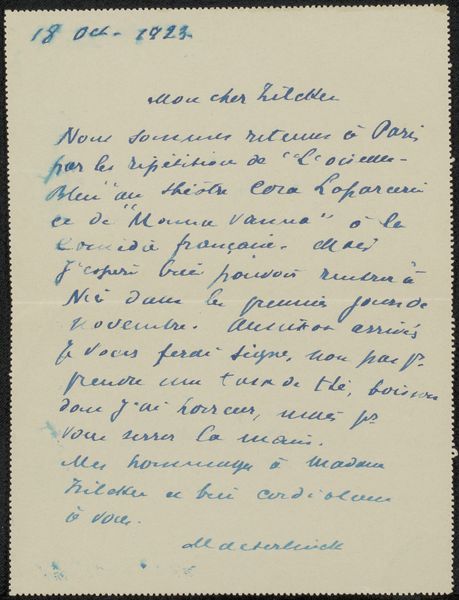 18 Oct. 1923.
Mon cher Zilcken
Nous sommes retenus à Paris
par les répétitions de "L'oiseau-
Bleu" au théâtre Cora Laparcerie
et de "Monna Vanna" à la
Comédie française. Mais
J'espère bien pouvoir rentrer à
Nice dans les premiers jours de
novembre. Aussitôt arrivés
Je vous ferai signe, non pas pr
prendre une tasse de thé, boisson
dont j'ai horreur, mais pr
vous serrer la main.
Mes hommages à Madame
Zilcken et bien cordialement
à vous.
Maeterlinck